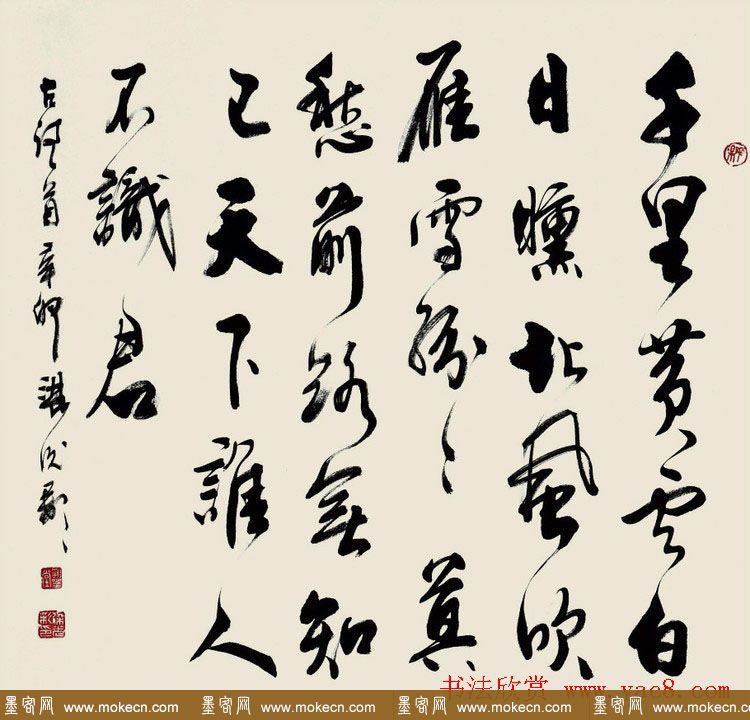 千里黄云白
日曛北风吹
雁雪纷々莫
愁前路無知
己天下誰人
不識君
古诗一首 辛卯
书法欣赏 www.yac8.com
墨客网 www.mokecn.com 墨客网 www.mokecn.com 墨客网 www.mokecn.com 墨客网 www.mokecn.com